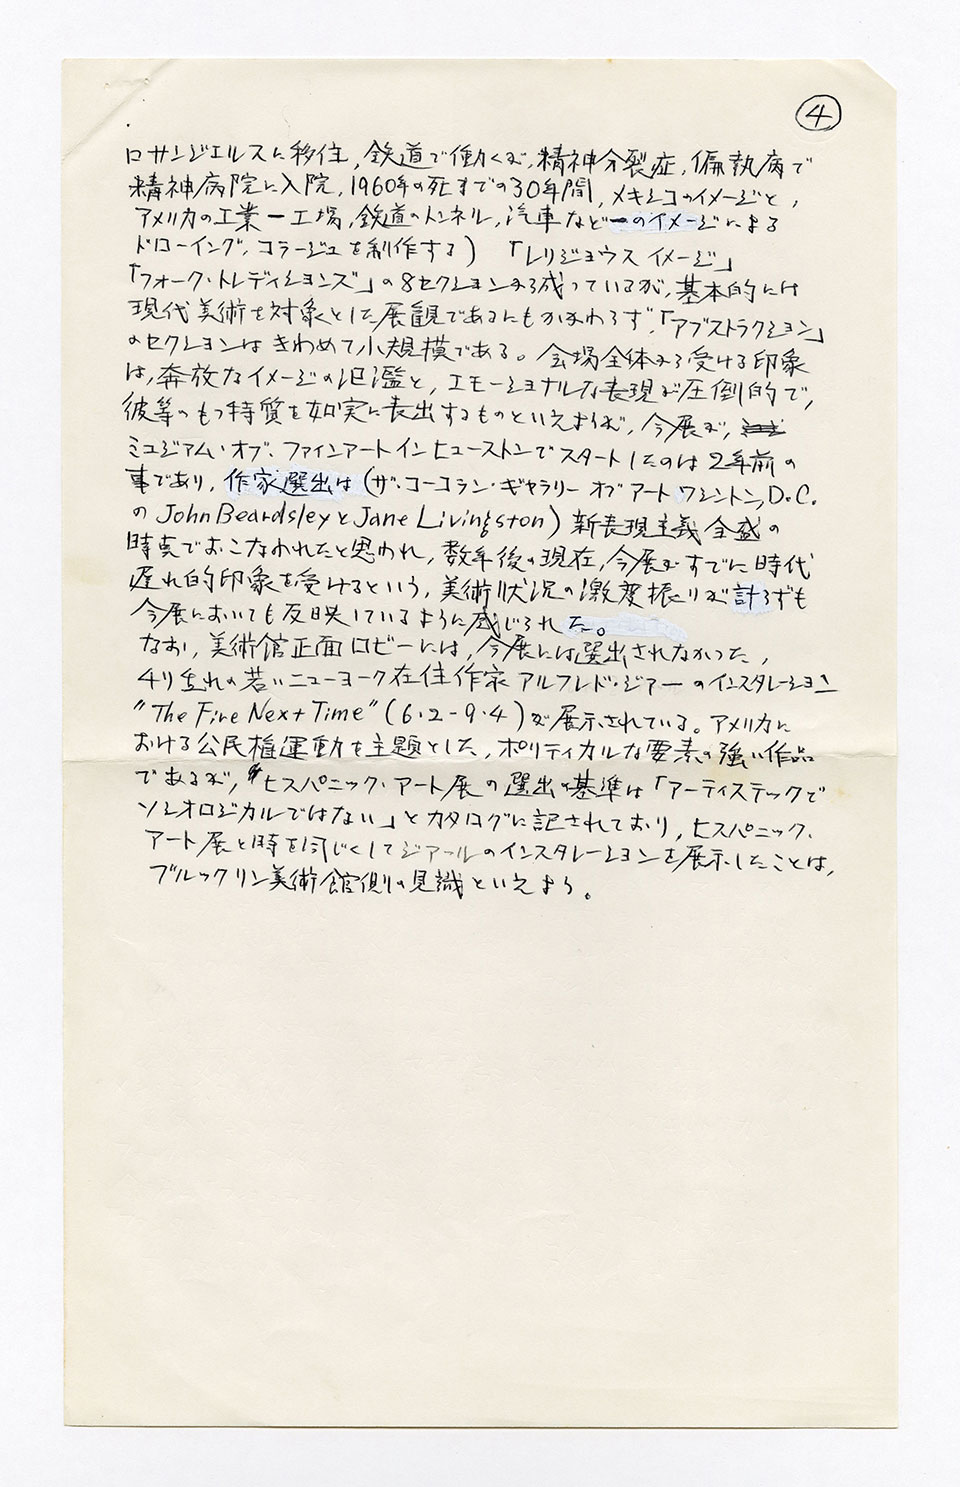 ④
ロサンジエルスに移住,鉄道で働くが,精神分裂症,偏執病で
精神病院に入院,1960年の死までの30年間,メキシコのイメージと,
アメリカの工業ー工場,鉄道のトンネル,汽車など一のイメージによる
ドローイング,コラージュを制作する) 「レリジョウス イメージ」
「フォーク・トレディションズ」の8セクションから成っているが,基本的には
現代美術を対象とした展観であるにもかかわらず,「アブストラクション」
のセクションは きわめて小規模である。会場全体から受ける印象
は,奔放なイメージの氾濫と,エモーショナルな表現が圧倒的で,
彼等のもつ特質を如実に表出するものといえようが,今展が,
ミュジアム・オブ・ファインアート イン ヒューストンでスタートしたのは2年前の
事であり,作家選出は(ザ・コーコラン・ギャラリー オブ アート ワシントン,D.C.
の John Beardsley と Jane Livingston) 新表現主義全盛の
時点でおこなわれたと思われ,数年後の現在,今展がすでに時代
遅れ的印象を受けるという,美術状況の激変振りが計らずも
今展においても反映しているように感じられた。
なお,美術館正面ロビーには,今展には選出されなかった,
在住作家 アルフレド・ジアーのインスタレーション
"The Fire Next Time" (6・2-9・4)が展示されている。アメリカに
おける公民権運動を主題とした,ポリティカルな要素の強い作品
であるが,ヒスパニック・アート展の選出の基準は「アーティステックで
ソシオロジカルではない」とカタログに記されており,ヒスパニック・
アート展と時を同じくしてジアールのインスタレーションを展示したことは,
ブルックリン美術館側の見識といえよう。